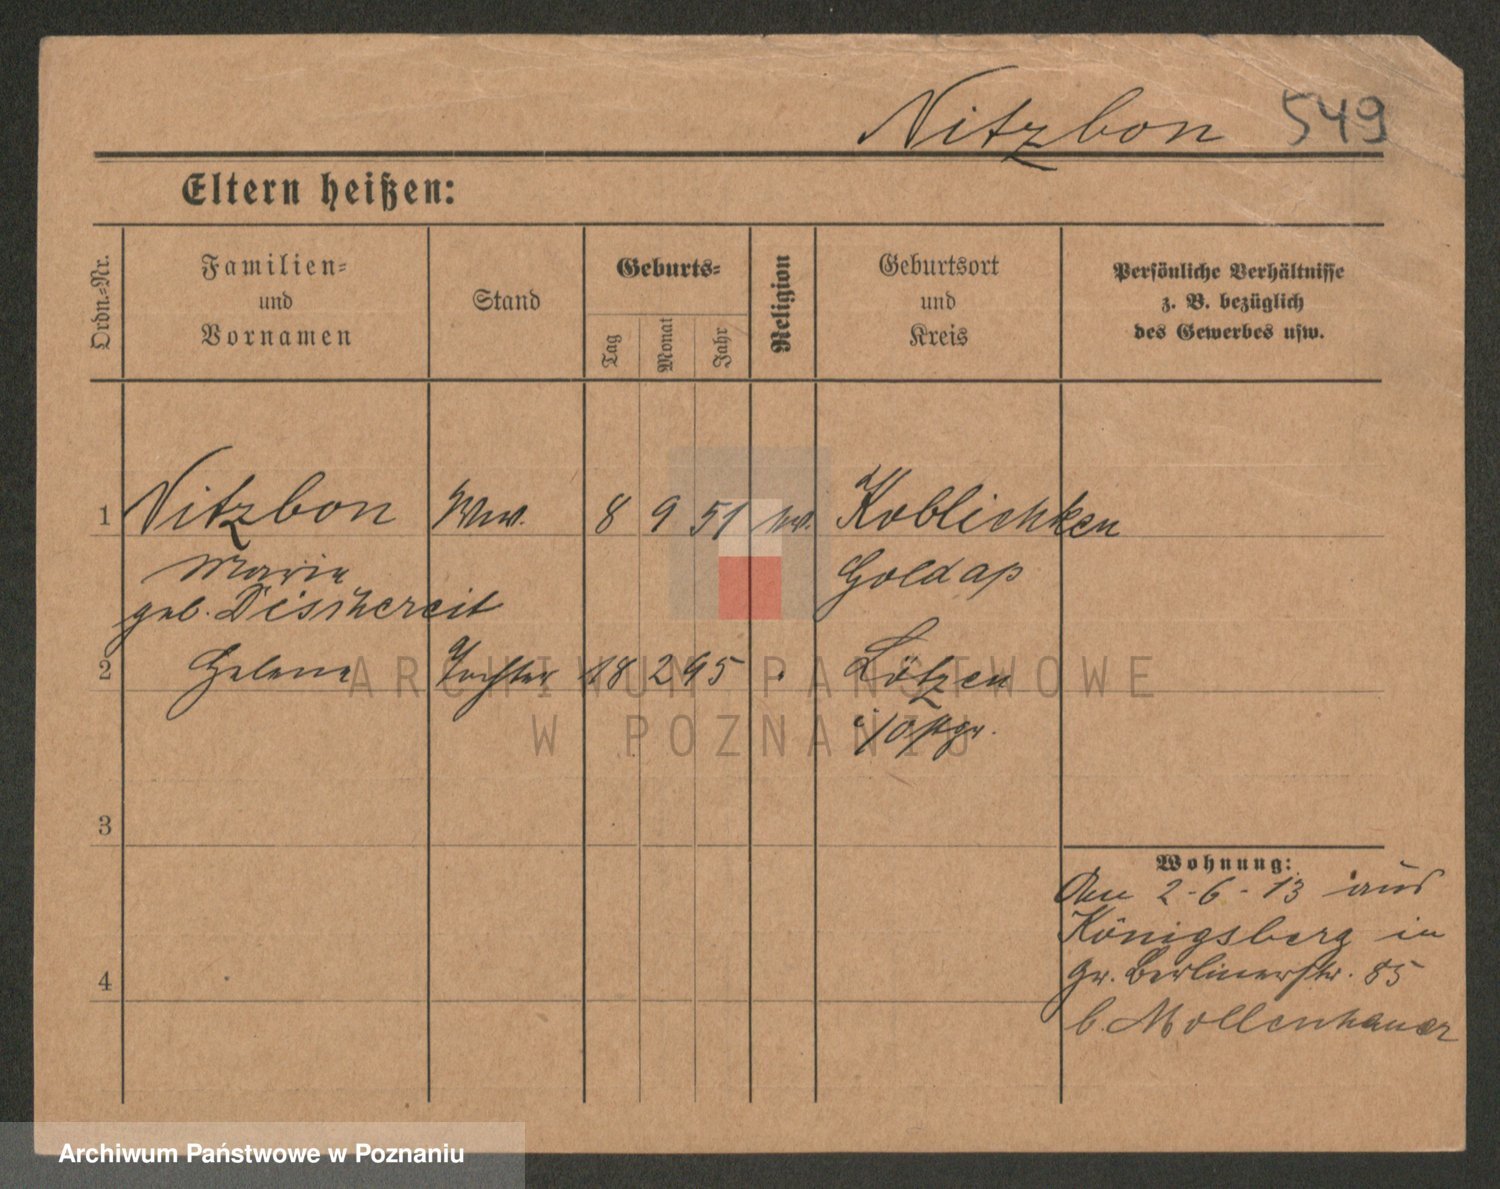 Nitzbon 549
Eltern heißen:
Ordn.-Nr.
Familien-
und
Vornamen
Stand
Geburts-
Tag
Monat
Jahr
Religion
Geburtsort
und
Kreis
Persönliche Verhältnisse
z. B. bezüglich
des Gewerbes usw.
1 Nitzbon Wwe. 8 9 51 ev. Koblichken
Marie Goldap
geb.
2 Helene Tochter 18 2 95 Lötzen
i/Ostpr.
3
4
Wohnung:
Am 2-6-13 aus
Königsberg in
Gr. Berlinerstr. 85
b. Mollenhauer
ARCHIWUM PAŃSTWOWE
W POZNANIU
Archiwum Państwowe w Poznaniu